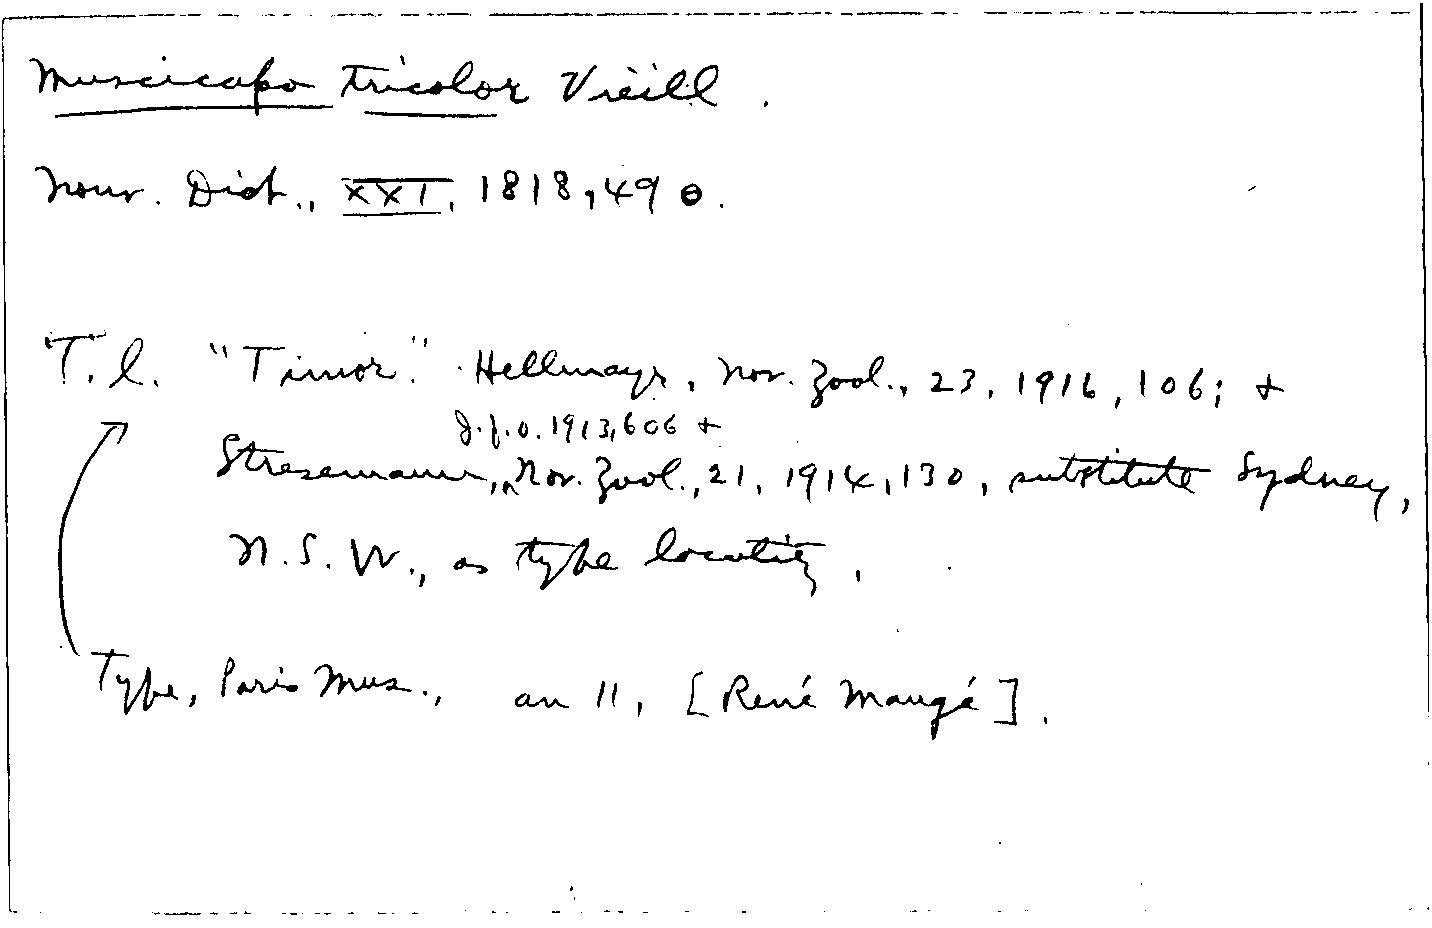 Muscicapa tricolor Vieill.
Nouv. Dict., XXI, 1818, 490.
T. l. "Timor." Hellmayr, Nov. Zool., 23, 1916, 106; +
J.f.O. 1913, 606 +
Stresemann, ^ Nov. Zool., 21, 1914, 130, substitute Sydney,
N.S.W., as type locality.
Type, Paris Mus., an 11, [René Maugé].